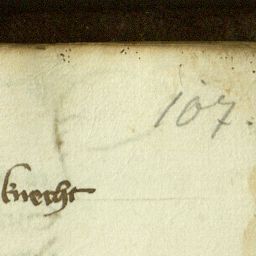 107.
knecht